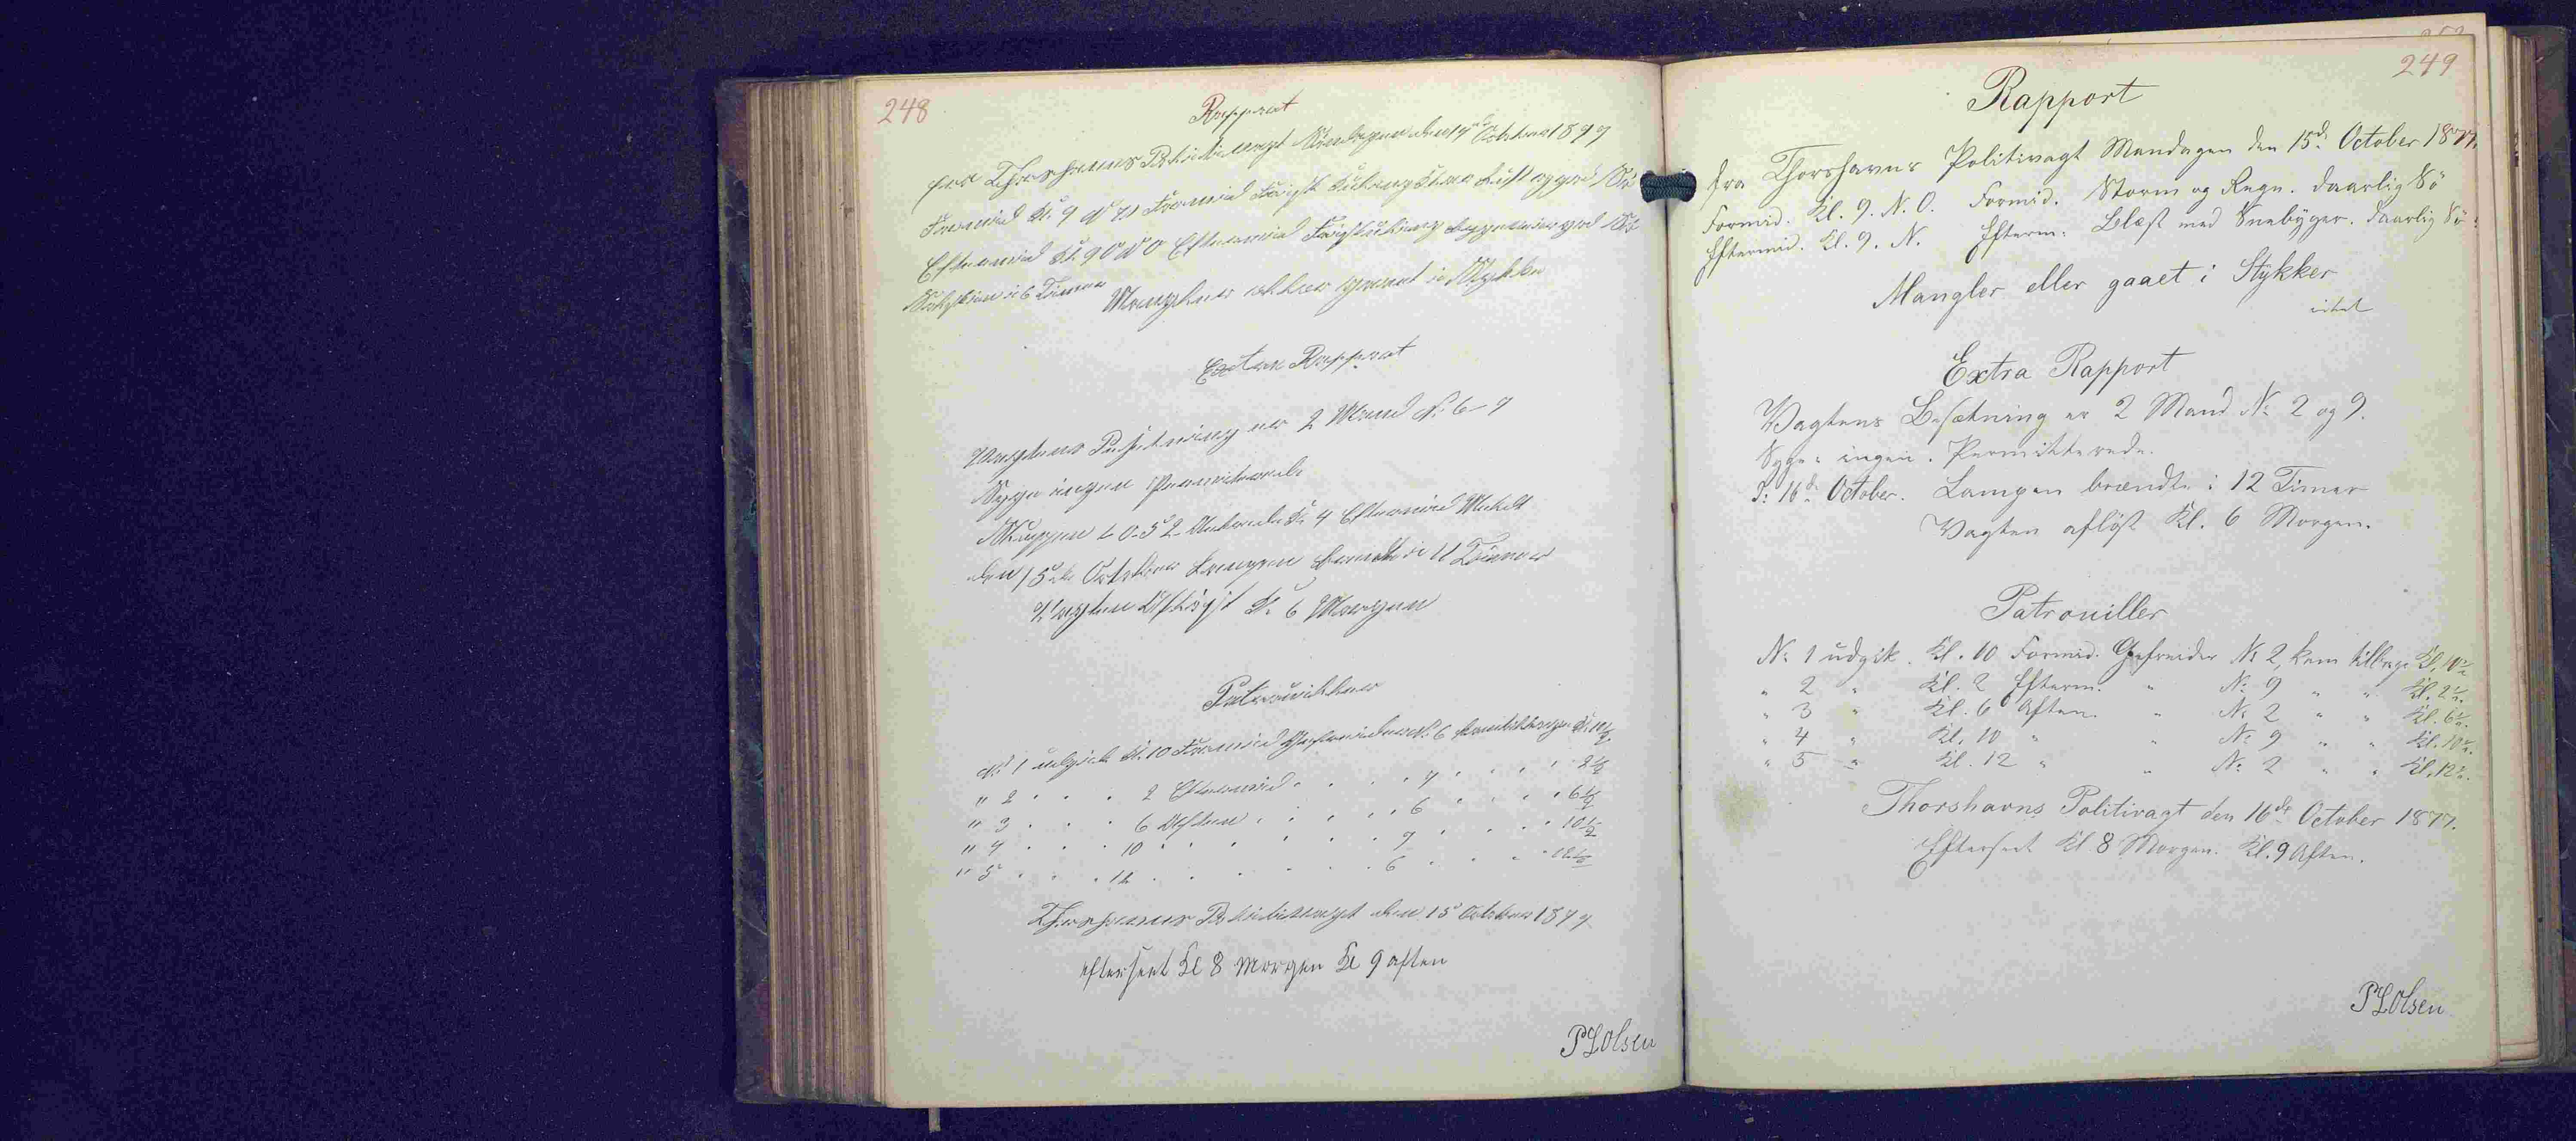 248
Rapport
fra Thorshavns Politivagt Söndagen den 14de October 1877
Formid Kl. 9 Formid Frisk Kuling Klar Luft og god Sö
Eftermid Kl. 9 Eftermid Frisk Kuling god Sö
i 6 Timer
Mangler eller gaaet i Stykker
Extra Rapport
Vagtens Besætning er 2 Mand No 6-7
Syge ingen Permiterede
Kl. 4 Eftermid
den 15de October Lampen brændte i 11 Timer
Vagten Aflöst Kl. 6 Morgen
Patrouiller
No 1 udgik Kl. 10 Formid Gefreider No. 6 kom tilbage Kl. 10 1/2
" 2 " " " 2 Eftermid " " " 7 " " " " 2 1/2
" 3 " " " 6 Aften " " " " 6 " " " " 6 1/2
" 4 " " " 10 " " " " " 7 " " " " 10 1/2
" 5 " " " 12 " " " " " 6 " " " " 12 1/2
Thorshavns Politivagt den 15de October 1877
efterseet Kl 8 Morgen Kl 9 aften
P L Olsen
249
Rapport
fra Thorshavns Politivagt Mandagen den 15de October 1877.
Formid. Kl. 9. N. O. Formid. Storm og Regn. daarlig Sö
Eftermid. Kl. 9. N. Efterm. Blæst med Snebyger. daarlig Sö
Mangler eller gaaet i Stykker
intet
Extra Rapport
Vagtens Besætning er 2 Mand No 2 og 9.
Syge ingen. Permitterede.
D: 16de October. Lampen brændte i 12 Timer
Vagten aflöst Kl. 6 Morgen.
Patrouiller
No 1 udgik. Kl. 10 Formid. Gefreider No 2, kom tilbage Kl. 10 1/2
" 2 " Kl. 2 Efterm. " No 9 " " Kl. 2 1/2.
" 3 " Kl. 6 Aften. " No 2 " " Kl. 6 1/2.
" 4 " Kl. 10 " " No 9 " " Kl. 10 1/2.
" 5 " Kl. 12 " " No 2 " " Kl. 12 1/2.
Thorshavns Politivagt den 16de October 1877.
Efterseet Kl 8 Morgen. Kl. 9 Aften.
P L Olsen